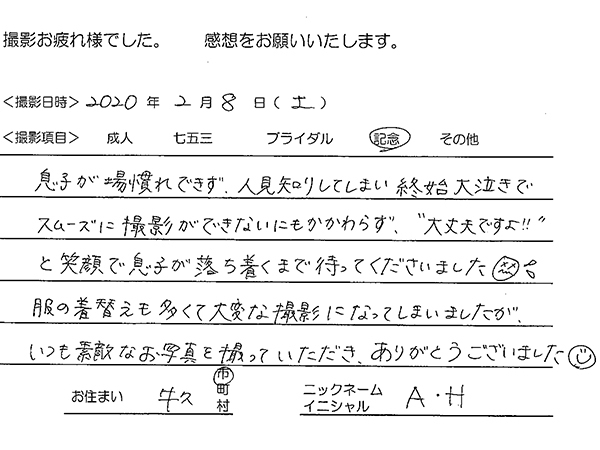 撮影お疲れ様でした。 感想をお願いいたします。
＜撮影日時＞ 2020 年 2 月 8 日 (土)
＜撮影項目＞ 成人 七五三 ブライダル 記念 その他
息子が場慣れできず、人見知りしてしまい終始大泣きで
スムーズに撮影ができないにもかかわらず、“大丈夫ですよ!!”
と笑顔で息子が落ち着くまで待ってくださいました
服の着替えも多くて大変な撮影になってしまいましたが、
いつも素敵なお写真を撮っていただき、ありがとうございました
お住まい 牛久 市町村 ニックネーム イニシャル A・H